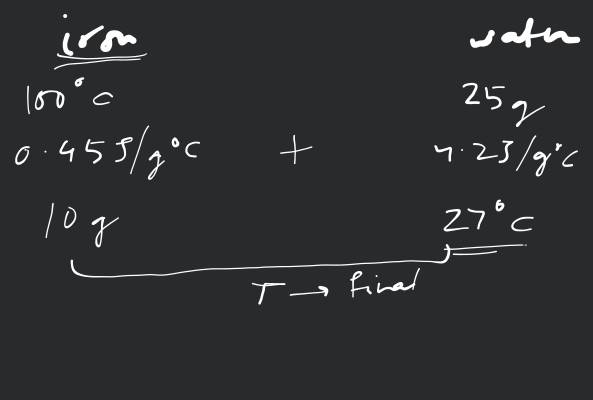 iron water
100°C 25g
0.45J/g°C + 4.2J/g°C
10g 27°C
T → final